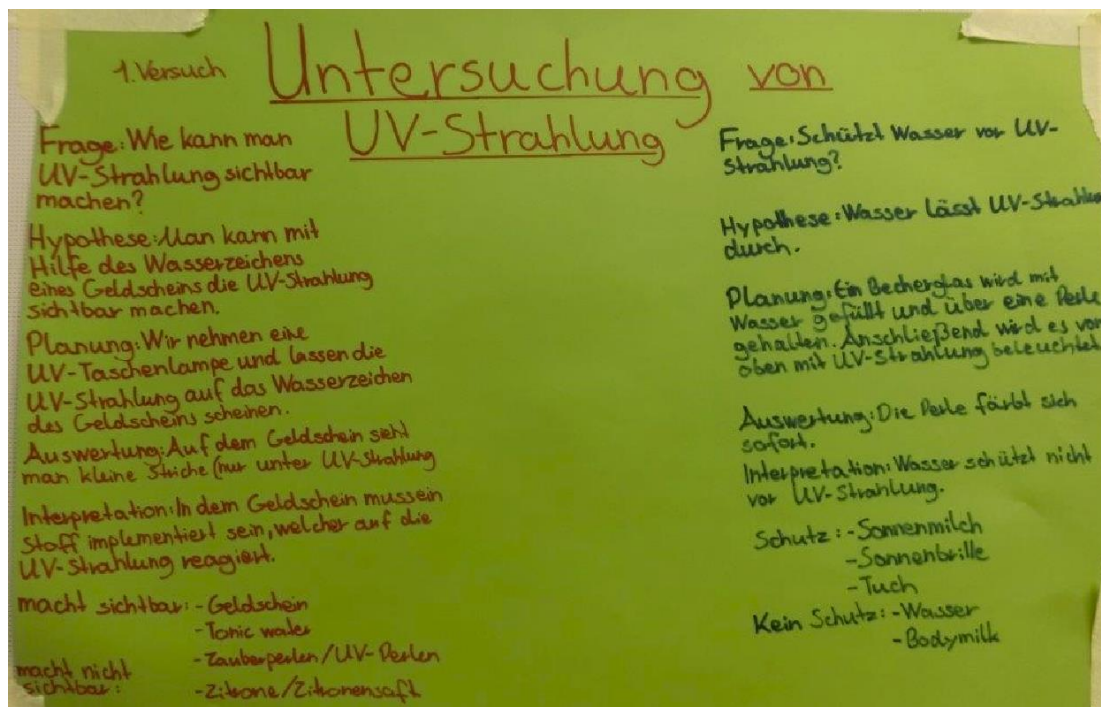 1. Versuch
Untersuchung von
UV-Strahlung
Frage: Wie kann man
UV-Strahlung sichtbar
machen?
Hypothese: Man kann mit
Hilfe des Wasserzeichens
eines Geldscheins die UV-Strahlung
sichtbar machen.
Planung: Wir nehmen eine
UV-Taschenlampe und lassen die
UV-Strahlung auf das Wasserzeichen
des Geldscheins scheinen.
Auswertung: Auf dem Geldschein sieht
man kleine Striche (nur unter UV-Strahlung
Interpretation: In dem Geldschein muss ein
Stoff implementiert sein, welcher auf die
UV-Strahlung reagiert.
macht sichtbar: - Geldschein
- Tonic water
- Zauberperlen / UV-Perlen
macht nicht
sichtbar: - Zitrone / Zitronensaft
Frage: Schützt Wasser vor UV-
Strahlung?
Hypothese: Wasser lässt UV-Strahlun
durch.
Planung: Ein Becherglas wird mit
Wasser gefüllt und über eine Perle
gehalten. Anschließend wird es von
oben mit UV-Strahlung beleuchtet
Auswertung: Die Perle färbt sich
sofort.
Interpretation: Wasser schützt nicht
vor UV-Strahlung.
Schutz: - Sonnenmilch
- Sonnenbrille
- Tuch
Kein Schutz: - Wasser
- Bodymilk